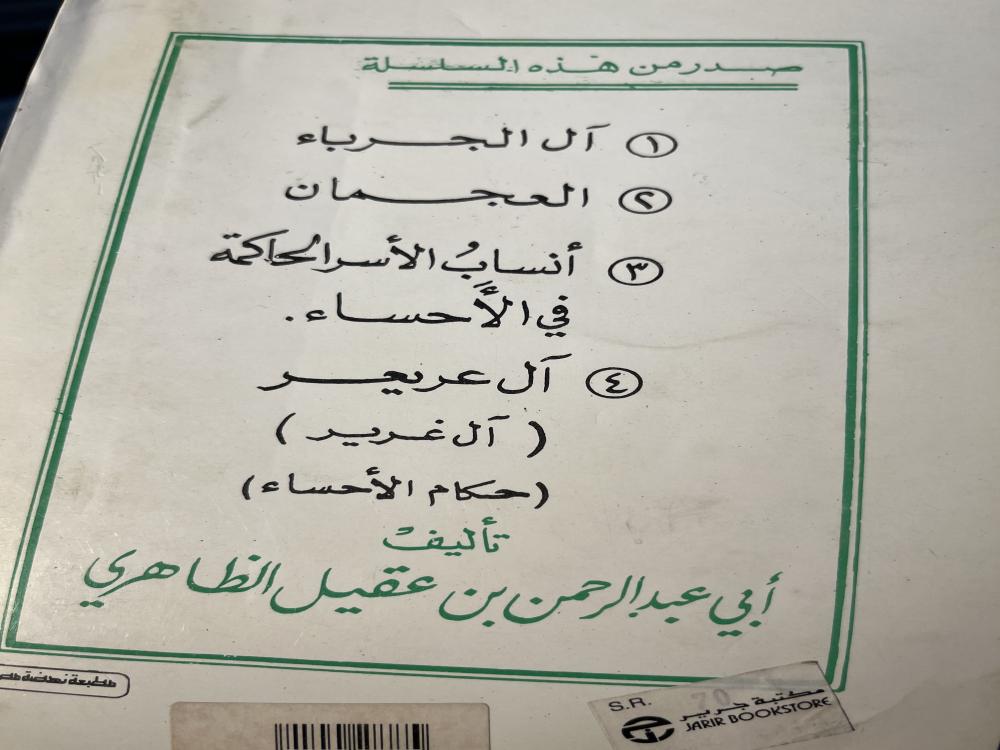 صدر من هذه السلسلة
١ آل الجرباء
٢ العجمان
٣ أنسابُ الأسر الحاكمة
في الأَحساء.
٤ آل عريعر
( آل غرير )
(حكام الأحساء)
تأليفُ
أبي عبدالرحمن بن عقيل الظاهري
مطبعة نهضة مصر
S.R. 20
مكتبة جرير
JARIR BOOKSTORE